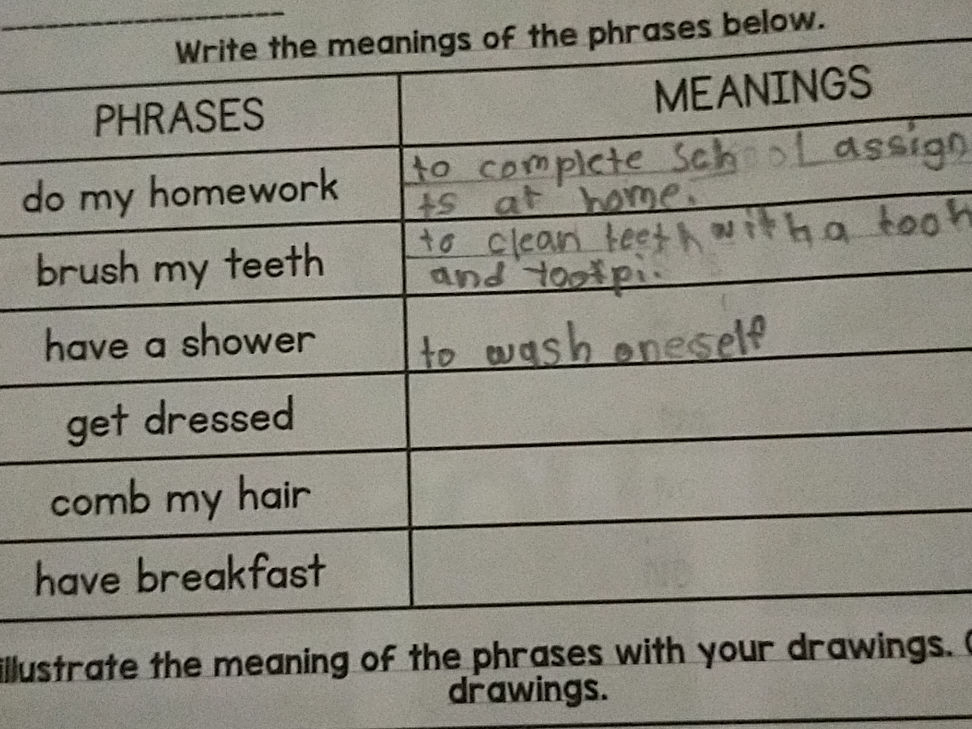 Write the meanings of the phrases below.
PHRASES
MEANINGS
do my homework
to complete school assign
ts at home.
brush my teeth
to clean teeth with a tooh
and tootpi.
have a shower
to wash oneself
get dressed
comb my hair
have breakfast
illustrate the meaning of the phrases with your drawings.
drawings.